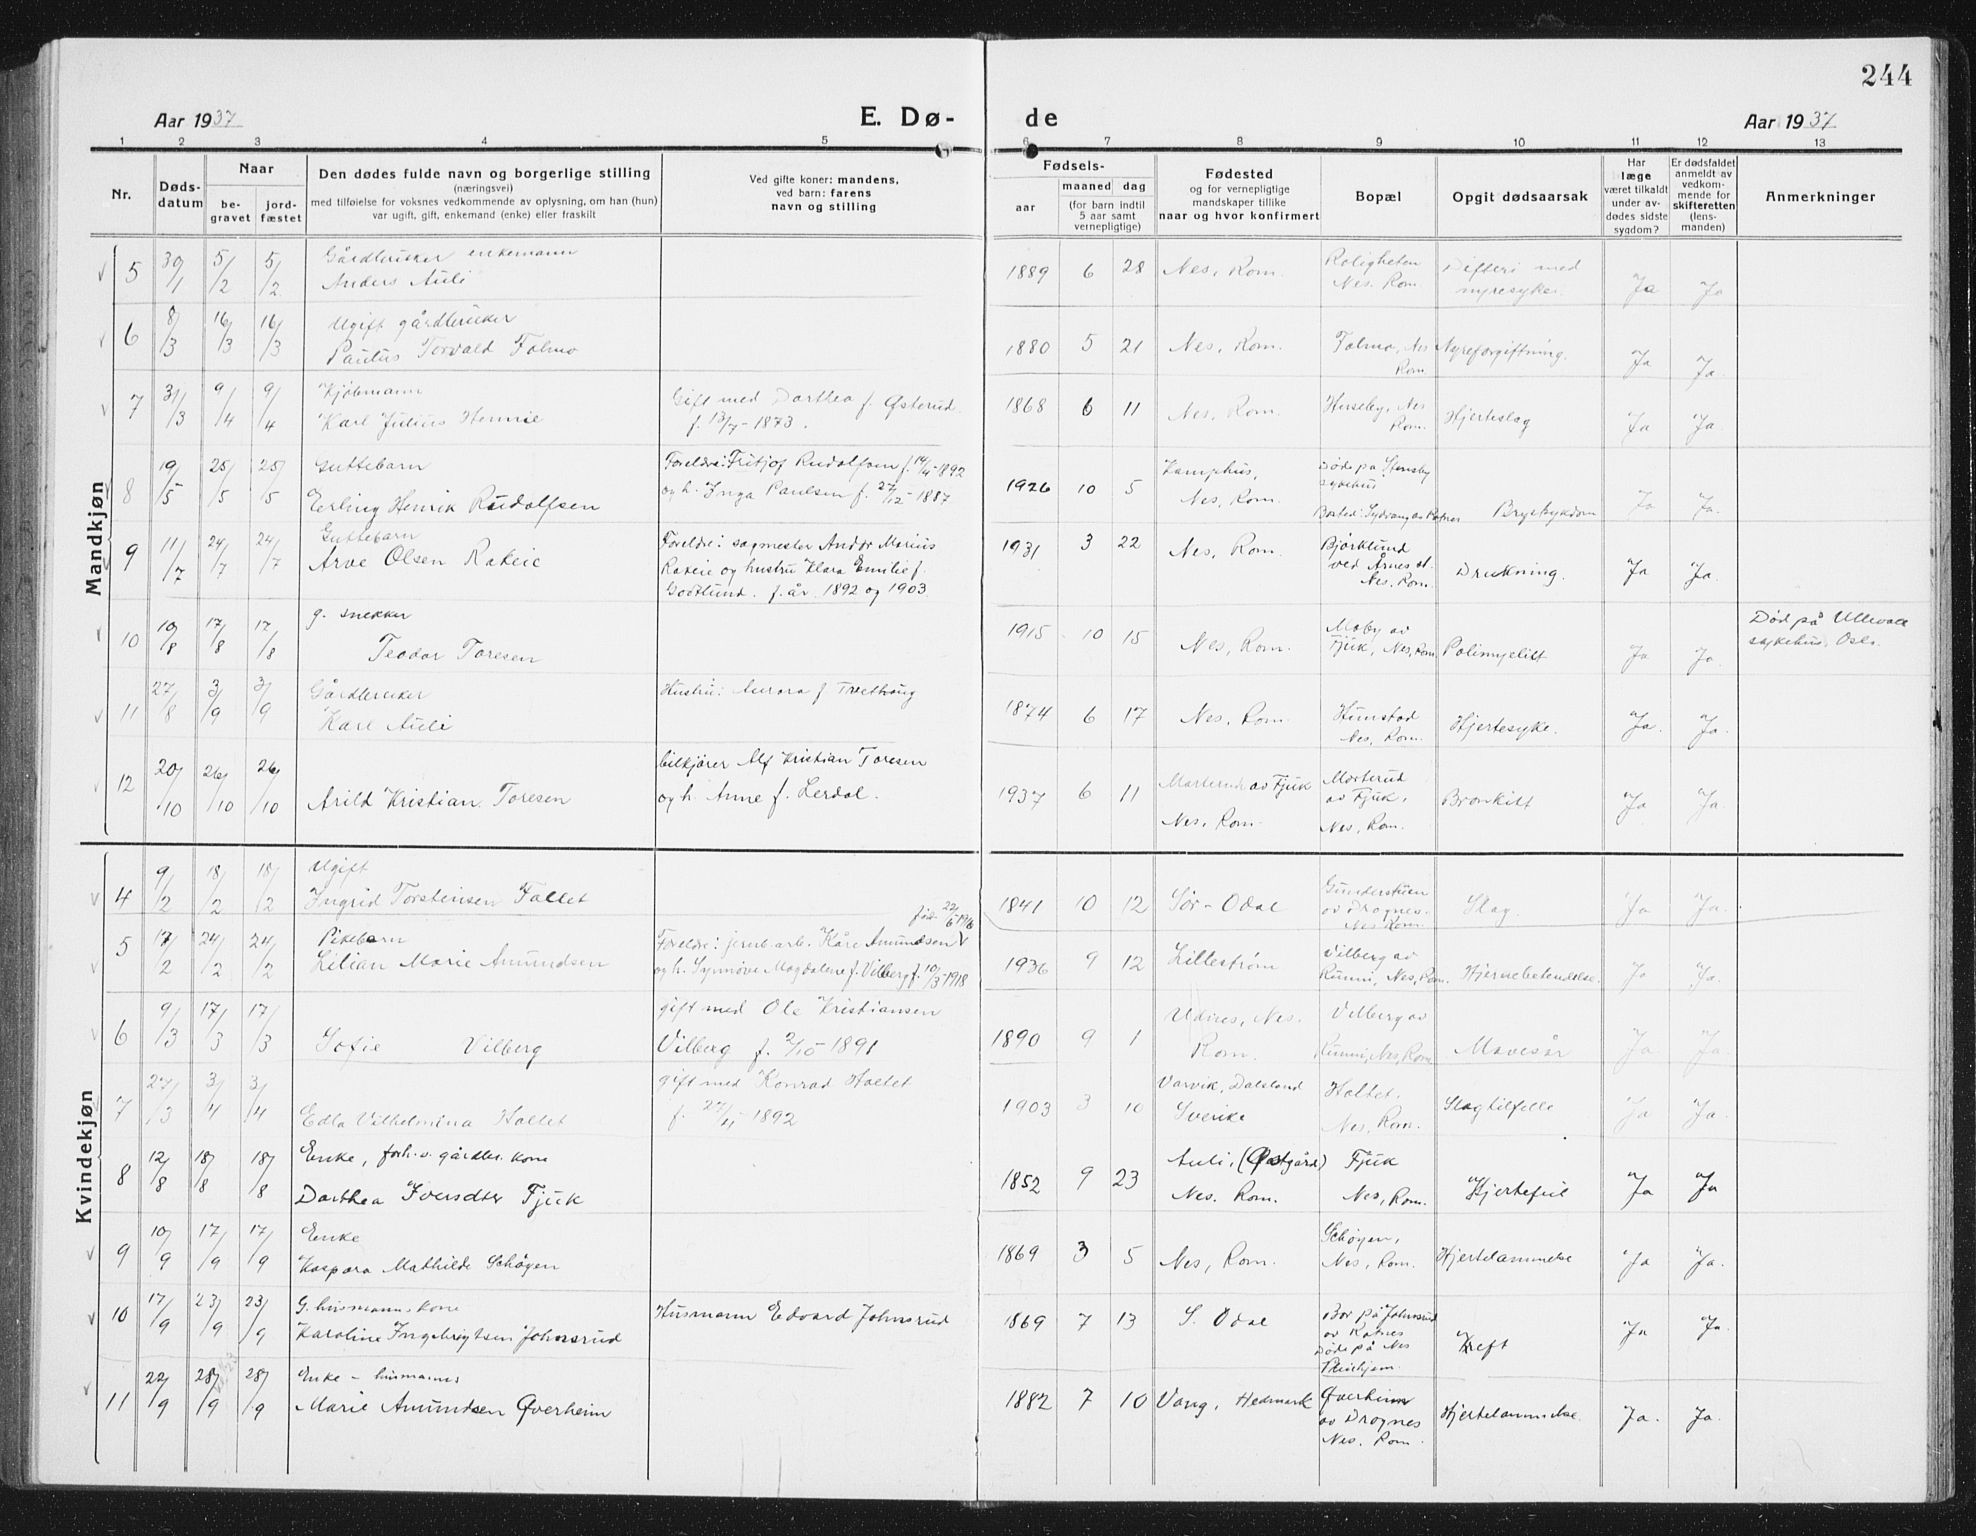 244
Aar 1937 E. Dø- de Aar 1937
1 2 3 4 5 6 7 8 9 10 11 12 13
Nr.
Døds-
datum
Naar
be-
gravet
jord-
fæstet
Den dødes fulde navn og borgerlige stilling
(næringsvei)
med tilføielse for voksnes vedkommende av oplysning, om han (hun)
var ugift, gift, enkemand (enke) eller fraskilt
Ved gifte koner: mandens,
ved barn: farens
navn og stilling
Fødsels-
aar
maaned dag
(for barn indtil
5 aar samt
vernepligtige)
Fødested
og for vernepligtige
mandskaper tillike
naar og hvor konfirmert
Bopæl
Opgit dødsaarsak
Har
læge
været tilkaldt
under av-
dødes sidste
sygdom?
Er dødsfaldet
anmeldt av
vedkom-
mende for
skifteretten
(lens-
manden)
Anmerkninger
Mandkjøn
5 30/1 5/2 5/2 Gårdbruker enkemann
Anders Auli
1889 6 28 Nes, Rom. Roligheten
Nes. Rom. Difteri med
nyresyke. Ja Ja
6 8/3 16/3 16/3 Ugift gårdbruker
Paulus Torvald Folmo
1880 5 21 Nes, Rom. Folmo, Nes
Rom. Nyreforgiftning. Ja Ja.
7 31/3 9/4 9/4 Kjøbmann
Karl Julius Hennie
Gift med Dorthea f. Østerud.
f. 13/7-1873.
1868 6 11 Nes, Rom. Huseby, Nes
Rom. Hjerteslag Ja Ja.
8 19/5 25/5 25/5 Guttebarn
Erling Henrik Rudolfsen
Foreldre: Fritjof Rudolfsen f. 14/4-1892
og h. Inga Paulsen f. 27/12-1887
1926 10 5 Kamphus,
Nes, Rom. Død på Stensby
sykehus
Bosted: Sydvang av Rotnes Brystsykdom Ja Ja.
9 11/7 24/7 24/7 Guttebarn
Arve Olsen Rakeie
Foreldre: sagmester Andor Marius
Rakeie og hustru Klara Emilie f.
Godtlund. f. år. 1892 og 1903.
1931 3 22 Nes, Rom. Bjørklund
ved Årnes st.
Nes, Rom. Drukning. Ja Ja.
10 10/8 17/8 17/8 g. snekker
Teodor Toresen
1915 10 15 Nes, Rom. Moby av
Fjuk, Nes, Rom. Polimyelitt Ja Ja. Død på Ullevaal
sykehus, Oslo.
11 27/8 3/9 3/9 Gårdbruker
Karl Auli
Hustru: Aurora f. Tvethaug
1874 6 17 Nes, Rom. Humstad
Nes, Rom. Hjertesyke. Ja. Ja.
12 20/10 26/10 26/10 Arild Kristian Toresen
bilkjører Alf Kristian Toresen
og h. Anne f. Lerdal.
1937 6 11 Morterud av Fjuk
Nes, Rom. Morterud
av Fjuk,
Nes, Rom. Bronkitt Ja Ja.
Kvindekjøn
4 9/2 18/2 18/2 Ugift
Ingrid Torstensen Fallet
1841 10 12 Sør-Odal Gunderstuen
av Drognes.
Nes Rom. Slag. Ja Ja.
5 17/2 24/2 24/2 Pikebarn
Lilian Marie Amundsen
født 22/6 1916
Foreldre: jernb.arb. Kåre Amundsen
og h. Synnøve Magdalene f. Vilberg f. 10/3-1918
1936 9 12 Lillestrøm Vilberg av
Runni, Nes, Rom. Hjernebetendelse. Ja Ja.
6 9/3 17/3 17/3 Sofie Vilberg
gift med Ole Kristiansen
Vilberg f. 2/10 1891
1890 9 1 Udnes, Nes.
Rom. Vilberg av
Runni, Nes, Rom. Mavesår Ja Ja.
7 27/3 3/4 3/4 Edla Vilhelmina Holtet
gift med Konrad Holtet
f. 27/11 1892
1903 3 10 Varvik, Dalsland
Sverike Holtet.
Nes, Rom. Slagtilfelle Ja Ja.
8 12/8 18/8 18/8 Enke, forh.v. gårdbr. kone
Dorthea Iversdtr Fjuk
1852 9 23 Auli, (Østgård)
Nes. Rom. Fjuk
Nes, Rom. Hjertefeil Ja Ja
9 10/9 17/9 17/9 Enke
Kaspara Mathilde Schøyen
1869 3 5 Nes, Rom. Schøyen,
Nes, Rom. Hjertelammelse Ja Ja.
10 17/9 23/9 23/9 G. husmannskone
Karoline Ingebrigtsen Johnsrud
Husmann Edvard Johnsrud
1869 7 13 S. Odal Bor på Johnsrud
av Rotnes
Død på Nes
Pleiehjem. Kreft Ja Ja.
11 22/9 28/9 28/9 Enke - husmanns
Marie Amundsen Øverheim
1882 7 10 Vang, Hedmark Øverheim
av Drognes
Nes. Rom. Hjertelammelse. Ja. Ja.